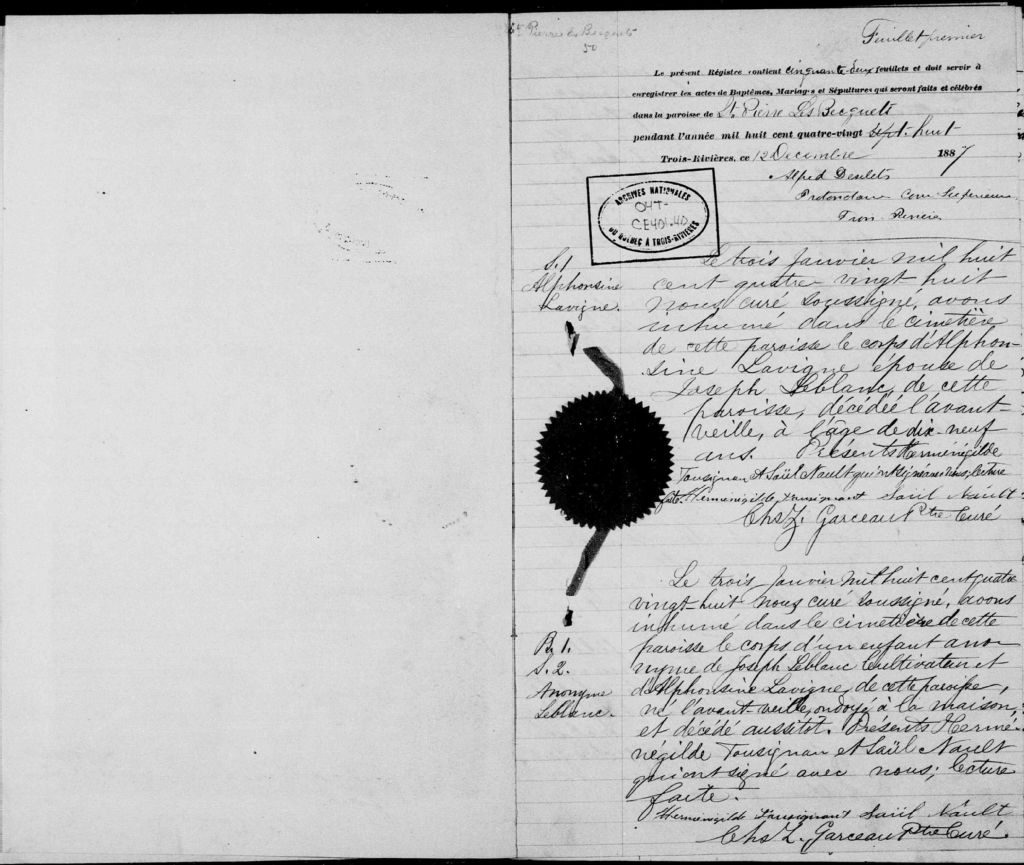 St Pierre les Becquets
50
Feuillet premier
Le présent Régistre contient cinquante-deux feuillets et doit servir à
enregistrer les actes de Baptêmes, Mariages et Sépultures qui seront faits et célébrés
dans la paroisse de St. Pierre Les Becquets
pendant l'année mil huit cent quatre-vingt sept-huit
Trois-Rivières, ce 12 Decembre 1887
Alfred Desilets
Protonotaire Cour Supérieure
Trois Rivières
ARCHIVES NATIONALES
04T-
CE401-40
DU QUÉBEC À TROIS-RIVIÈRES
S. 1
Alphonsine
Lavigne.
Le trois Janvier mil huit
cent quatre vingt huit
nous curé soussigné, avons
inhumé dans le cimetière
de cette paroisse le corps d'Alphon-
sine Lavigne épouse de
Joseph Leblanc, de cette
paroisse, décédée l'avant-
veille, à l'âge de dix-neuf
ans. Présents Herménégilde
Tousignan et Saül Nault qui ont signé avec nous, lecture
faite. Herménégilde Tousignant Saül Nault
Chs Z. Garceau Ptre Curé
B. 1.
S. 2.
Anonyme
Leblanc.
Le trois Janvier mil huit cent quatre
vingt-huit nous curé soussigné, avons
inhumé dans le cimetière de cette
paroisse le corps d'un enfant ano-
nyme de Joseph Leblanc Cultivateur et
d'Alphonsine Lavigne, de cette paroisse,
né l'avant-veille, ondoyé à la maison,
et décédé aussitôt. Présents Hermé-
négilde Tousignan et Saül Nault
qui ont signé avec nous; lecture
faite.
Herménégilde Tousignant Saül Nault
Chs Z. Garceau Ptre Curé